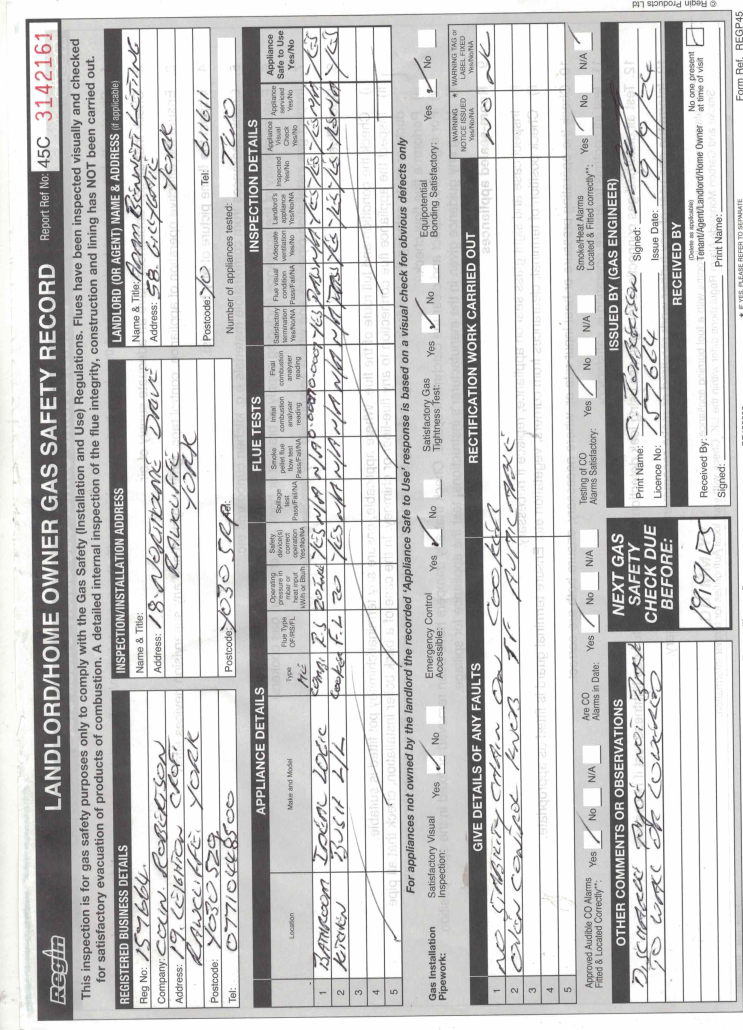 Regin
LANDLORD/HOME OWNER GAS SAFETY RECORD
Report Ref No: 45C 3142161
This inspection is for gas safety purposes only to comply with the Gas Safety (Installation and Use) Regulations. Flues have been inspected visually and checked
for satisfactory evacuation of products of combustion. A detailed internal inspection of the flue integrity, construction and lining has NOT been carried out.
REGISTERED BUSINESS DETAILS
Reg No: 157664.
Company: COLIN ROBERTSON
Address: 19, LEIGHTON CROFT.
RAWCLIFFE. YORK
Postcode: YO30 5ZG
Tel: 07710448500
INSPECTION/INSTALLATION ADDRESS
Name & Title:
Address: 18. DRIVE
RAWCLIFFE
YORK
Postcode: YO30 Tel:
LANDLORD (OR AGENT) NAME & ADDRESS (if applicable)
Name & Title: ADAM BENNETT LETTING
Address: 58. GILLYGATE
YORK
Postcode: YO Tel: 611611
Number of appliances tested: TWO
APPLIANCE DETAILS
FLUE TESTS
INSPECTION DETAILS
Location
Make and Model
Type
Flue Type OF/RS/FL
Operating pressure in mbar or heat input kW/h or Btu/h
Safety device(s) correct operation Yes/No/NA
Spillage test Pass/Fail/NA
Smoke pellet flue flow test Pass/Fail/NA
Initial combustion analyser reading
Final combustion analyser reading
Satisfactory termination Yes/No/NA
Flue visual condition Pass/Fail/NA
Adequate ventilation Yes/No
Landlord's appliance Yes/No/NA
Inspected Yes/No
Appliance Visual Check Yes/No
Appliance serviced Yes/No
Appliance Safe to Use Yes/No
1 BATHROOM IDEAL LOGIC COMBI RS YES NA NA YES PASS NA YES YES YES YES
2 KITCHEN BUSH L/L COOKER F.L 20 YES NA NA NA NA NA YES YES YES YES NA YES
3
4
5
For appliances not owned by the landlord the recorded 'Appliance Safe to Use' response is based on a visual check for obvious defects only
Gas Installation Pipework:
Satisfactory Visual Inspection: Yes ✓ No
Emergency Control Accessible: Yes ✓ No
Satisfactory Gas Tightness Test: Yes ✓ No
Equipotential Bonding Satisfactory: Yes ✓ No
GIVE DETAILS OF ANY FAULTS
RECTIFICATION WORK CARRIED OUT
WARNING * NOTICE ISSUED Yes/No/NA
WARNING TAG or LABEL FIXED Yes/No/NA
1 NO STABILITY CHAIN ON COOKER NO
2 OVEN CONTROL
3
4
5
Approved Audible CO Alarms Fitted & Located Correctly**: Yes ✓ No N/A
Are CO Alarms in Date: Yes ✓ No N/A
Testing of CO Alarms Satisfactory: Yes ✓ No N/A
Smoke/Heat Alarms Located & Fitted correctly**: Yes ✓ No N/A
OTHER COMMENTS OR OBSERVATIONS
NEXT GAS
SAFETY
CHECK DUE
BEFORE:
19/9/25
ISSUED BY (GAS ENGINEER)
Print Name: C. ROBERTSON Signed:
Licence No: 157664 Issue Date: 19/9/24
RECEIVED BY
(Delete as applicable)
Received By: Tenant/Agent/Landlord/Home Owner
No one present at time of visit
Signed: Print Name:
* IF YES, PLEASE REFER TO SEPARATE
Form Ref. REGP45
© Regin Products Ltd